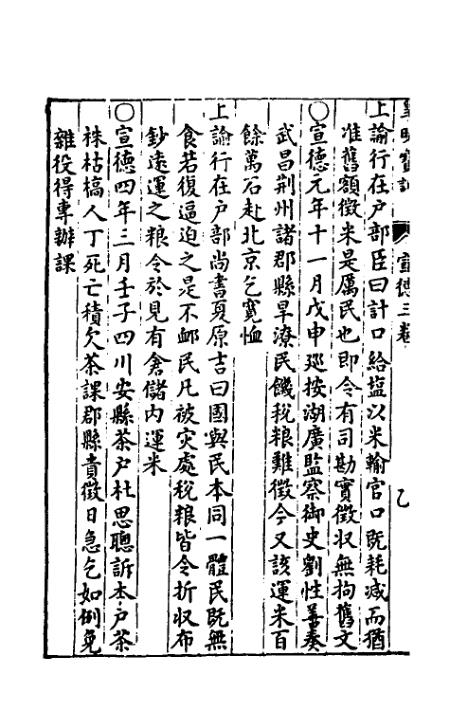 皇明寶訓 宣德三卷 乙
上諭行在户部臣曰計口給塩以米輸官口既耗减而猶
准舊額徵米是厲民也即令有司勘實徵収無拘舊文
〇宣德元年十一月戊申廵按湖廣監察御史劉性善奏
武昌荆州諸郡縣旱潦民饑稅粮難徵今又該運米百
餘萬石赴北京乞寛恤
上諭行在户部尚書夏原吉曰國與民本同一體民既無
食若復逼迫之是不䘏民凡被灾處稅粮皆令折収布
鈔逺運之粮令於見有倉儲内運米
〇宣德四年三月壬子四川安縣茶户杜思聰訴本户茶
株枯槁人丁死亡積欠茶課郡縣責徵日急乞如例免
雜役得專辦課